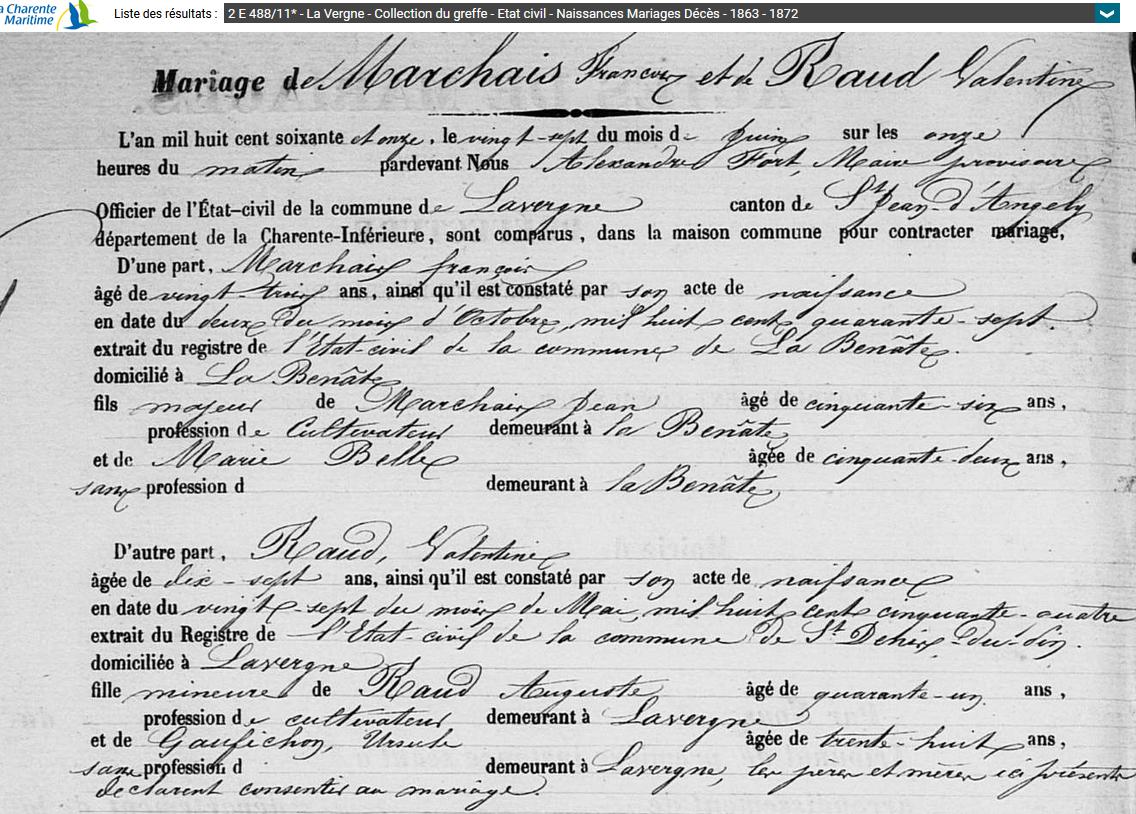 la Charente
Maritime
Liste des résultats :
2 E 488/11* - La Vergne - Collection du greffe - Etat civil - Naissances Mariages Décès - 1863 - 1872
Mariage de Marchais François et de Raud Valentine
L'an mil huit cent soixante et onze, le vingt-sept du mois de Juin sur les onze
heures du matin pardevant Nous Alexandre Fort, Maire provisoire
Officier de l'État-civil de la commune de Lavergne canton de St Jean-d'Angely
département de la Charente-Inférieure, sont comparus, dans la maison commune pour contracter mariage,
D'une part, Marchais françois
âgé de vingt-trois ans, ainsi qu'il est constaté par son acte de naissance
en date du deux du mois d'Octobre mil huit cent quarante-sept.
extrait du registre de l'Etat-civil de la commune de La Benâte.
domicilié à La Benâte
fils majeur de Marchais Jean âgé de cinquante-six ans,
profession de Cultivateur demeurant à la Benâte
et de Marie Belle âgée de cinquante-deux ans,
sans profession d demeurant à la Benâte
D'autre part, Raud, Valentine
âgée de dix-sept ans, ainsi qu'il est constaté par son acte de naissance
en date du vingt-sept du mois de Mai mil huit cent cinquante-quatre
extrait du Registre de l'Etat-civil de la commune de St Denis-du-Pin.
domiciliée à Lavergne
fille mineure de Raud Auguste âgé de quarante-un ans,
profession de cultivateur demeurant à Lavergne
et de Gaufichon, Ursule âgée de trente-huit ans,
sans profession d demeurant à Lavergne, les pères et mères ici présents
déclarent consentir au mariage.